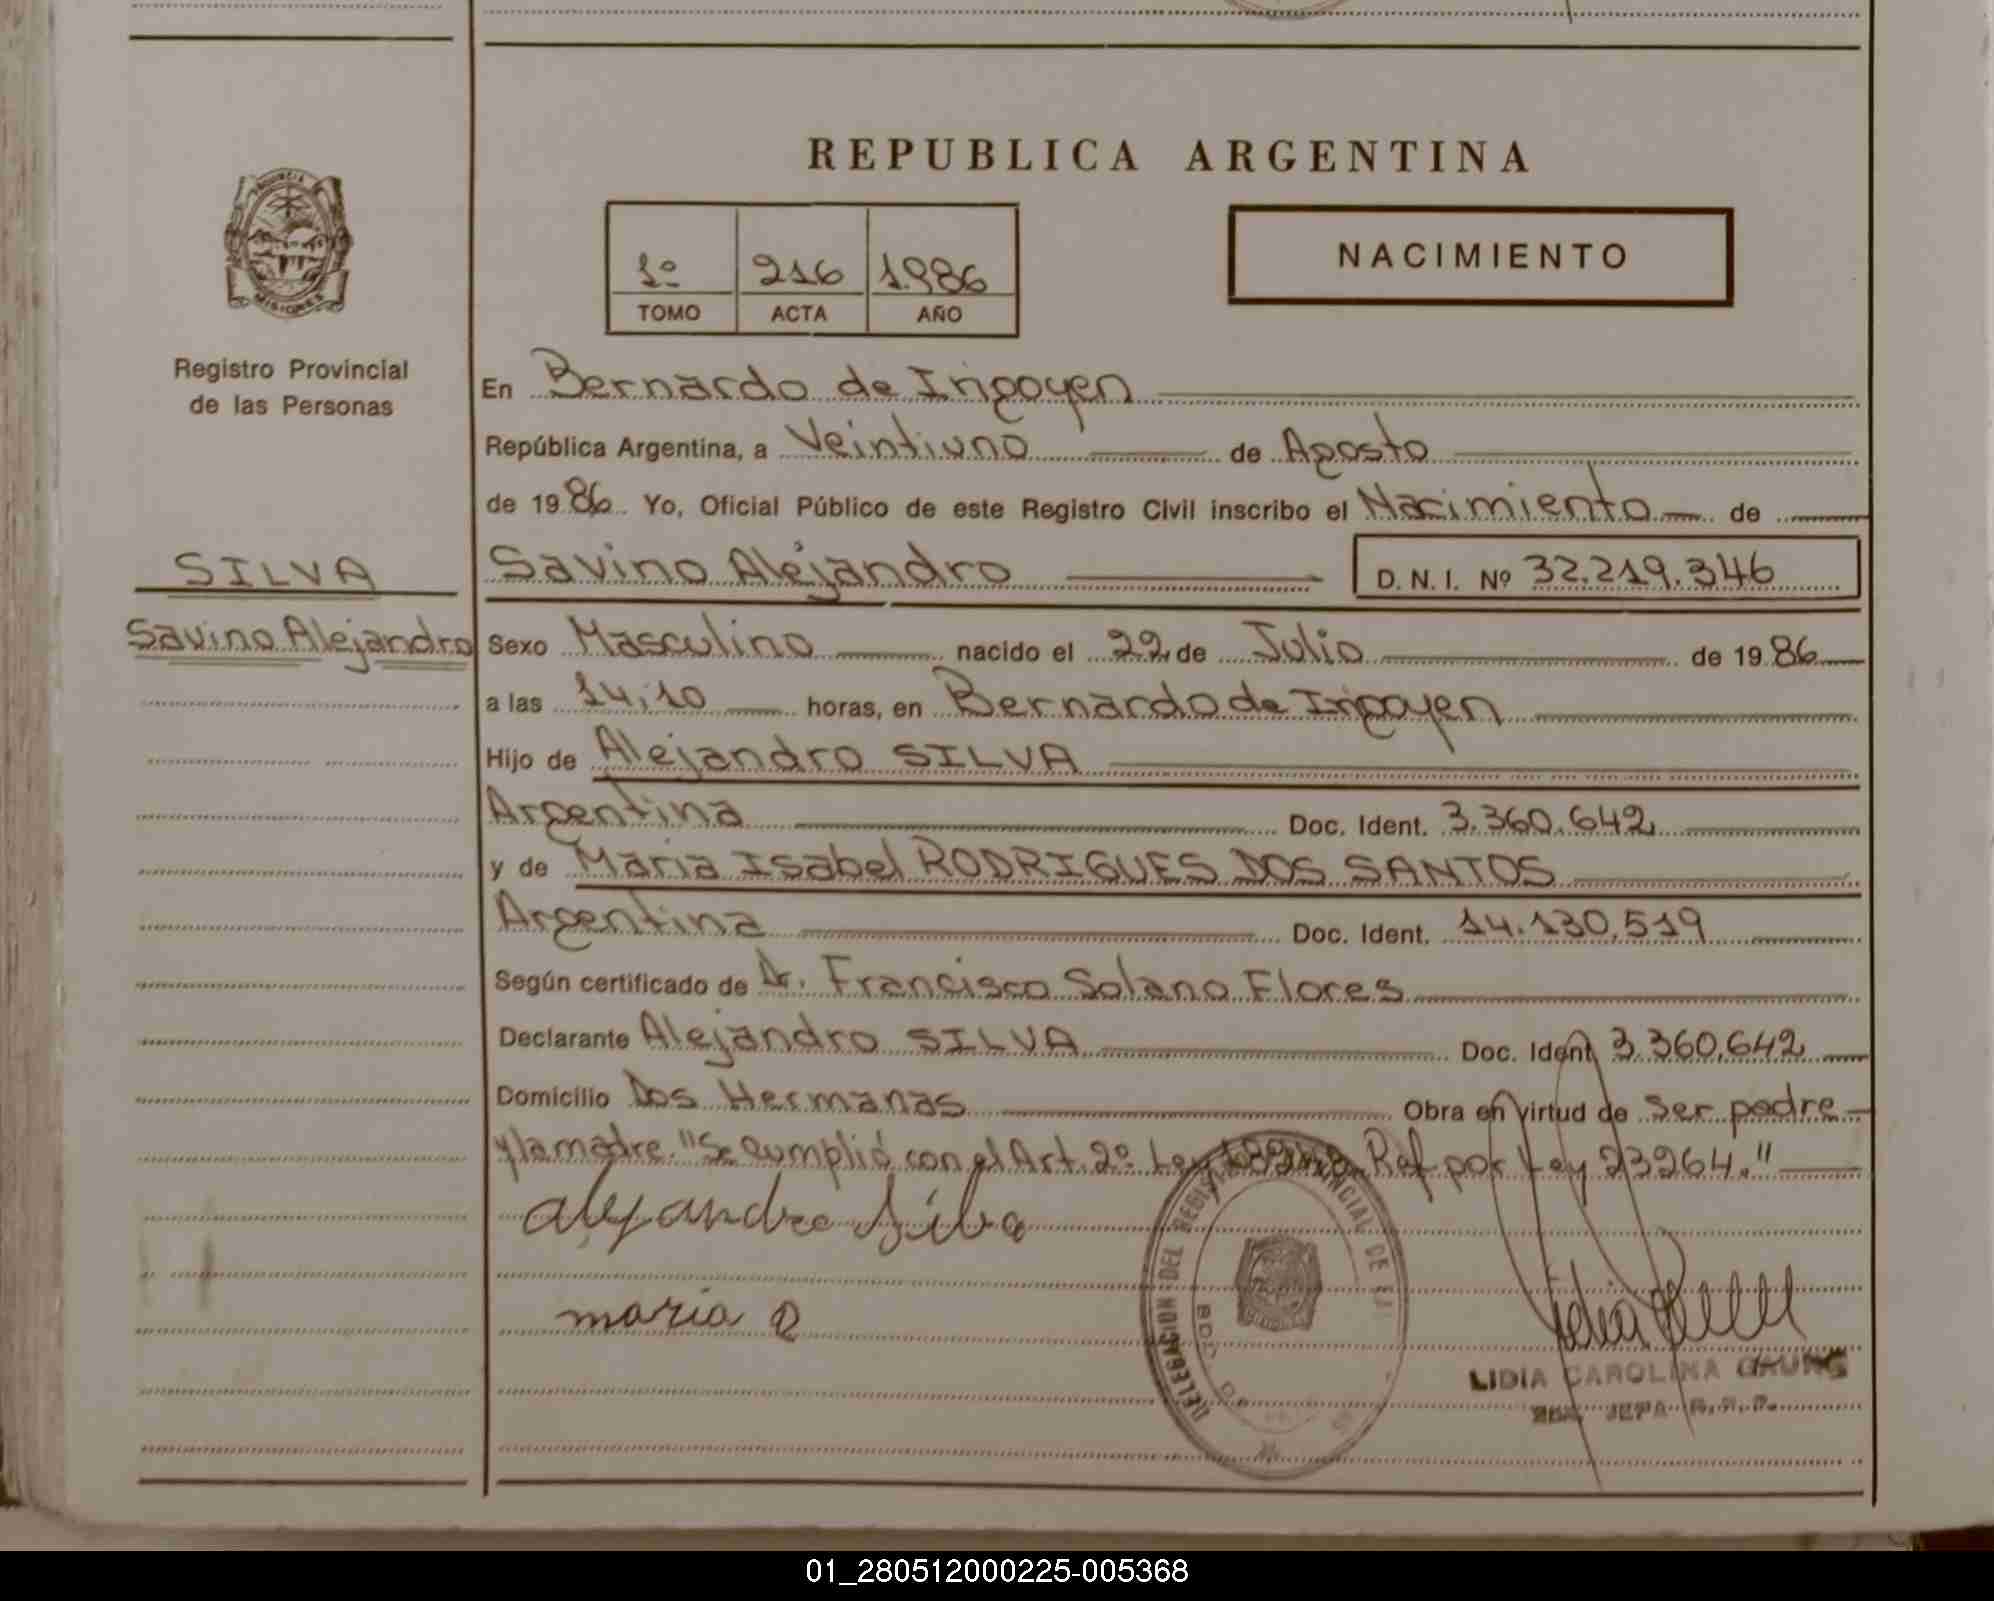 REPUBLICA ARGENTINA
PROVINCIA DE
MISIONES
Registro Provincial
de las Personas
1º 216 1.986
TOMO ACTA AÑO
NACIMIENTO
En Bernardo de Irigoyen
República Argentina, a Veintiuno de Agosto
de 1986 Yo, Oficial Público de este Registro Civil inscribo el Nacimiento de
SILVA
Savino Alejandro
Savino Alejandro D.N.I. Nº 32.219.346
Sexo Masculino nacido el 22 de Julio de 1986
a las 14,10 horas, en Bernardo de Irigoyen
Hijo de Alejandro SILVA
Argentina Doc. Ident. 3.360.642
y de Maria Isabel RODRIGUES DOS SANTOS
Argentina Doc. Ident. 14.130.519
Según certificado de Dr. Francisco Solano Flores
Declarante Alejandro SILVA Doc. Ident. 3.360.642
Domicilio Dos Hermanas Obra en virtud de Ser padre
y la madre. "Se Cumplió con el Art. 2º Ley Ref por Ley 23264."
alejandro Silva
maria
DELEGACION DEL REGISTRO PROVINCIAL DE
LIDIA CAROLINA
JEFA R.P.P.
01_280512000225-005368